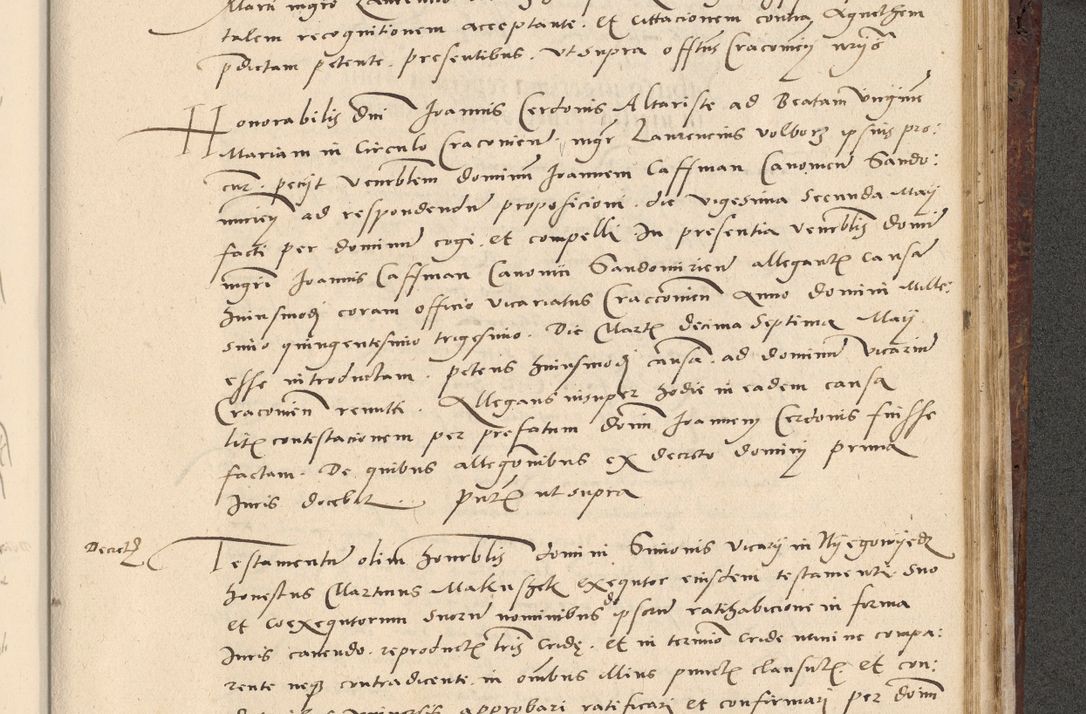 talem recognitionem acceptante. Et citacionem contra Agnethem
pdictam petente. presentibus. ut supra
Honorabilis dni Joannis Cerdonis Altariste ad Beatam virginem
Mariam in Circulo Cracovien. mgr Laurencius volborz ipsius pro:
cur. peciit venerblem dominum Joannem Caffman Canonicu Sando:
mirien ad respondendu proposicioni. die vigesima secunda Maij
facti per dominum cogi. et compelli. In presentia venerblis domi
mgri Joannis Caffman Canonici Sandomirien allegantis causa
huiusmodi coram officio vicariatus Craccovien Anno domini Mille:
simo quingentesimo trigesimo. Die Martis decima septima Maij
esse introductam. petens huiusmodi causa. ad dominum vicariu
Cracovien remitti. Allegans insuper hodie in eadem causa
litis contestacionem per prefatum domi Joannem Cerdonis fuisse
factam. De quibus allegonibus ex decreto dominj prima
Juris docebit. pntibus ut supra
Decretu
Testamentu olim honerblis domini Simonis vicarij in
honestus Martinus exequtor eiusdem testamenti suo
et coexequtorum suoru nominibus de ipsoru ratihabicione in forma
Juris cavendo. reproductis lris Cride. et in termio Cride nemine compa:
rente neqz contradicente. in omibus illius punctis clausulis et con:
approbari ratificari et confirmari per domi